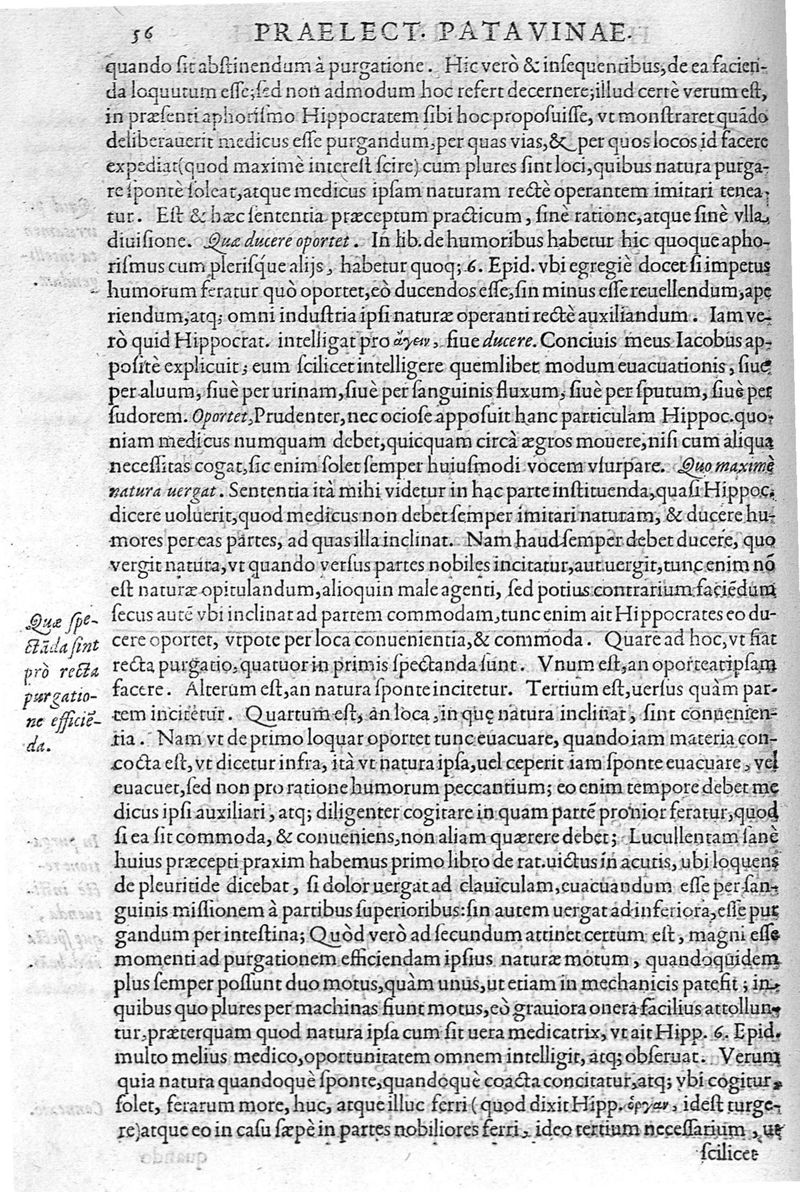 56 PRAELECT. PATAVINAE.
quando sit abstinendum à purgatione. Hic verò & insequentibus, de ea facien-
da loquutum esse; sed non admodum hoc refert decernere; illud certè verum est,
in præsenti aphorismo Hippocratem sibi hoc proposuisse, vt monstraret quãdo
deliberauerit medicus esse purgandum, per quas vias, & per quos locos id facere
expediat (quod maximè interest scire) cum plures sint loci, quibus natura purga-
re spontè soleat, atque medicus ipsam naturam rectè operantem imitari tenea-
tur. Est & hæc sententia præceptum practicum, sinè ratione, atque sinè vlla
diuisione. Quæ ducere oportet. In lib. de humoribus habetur hic quoque apho-
rismus cum plerisq́ue alijs, habetur quoq; 6. Epid. vbi egregiè docet si impetus
humorum feratur quò oportet, eò ducendos esse, sin minus esse reuellendum, ape
riendum, atq; omni industria ipsi naturæ operanti rectè auxiliandum. Iam ve-
rò quid Hippocrat. intelligat pro ἄγειν, siue ducere. Conciuis meus Iacobus ap-
positè explicuit; eum scilicet intelligere quemlibet modum euacuationis, siuè
per aluum, siuè per urinam, siuè per sanguinis fluxum, siuè per sputum, siuè per
sudorem. Oportet, Prudenter, nec ociose apposuit hanc particulam Hippoc. quo-
niam medicus numquam debet, quicquam circà ægros mouere, nisi cum aliqua
necessitas cogat, sic enim solet semper huiusmodi vocem vsurpare. Quo maximè
natura uergat. Sententia ità mihi videtur in hac parte instituenda, quasi Hippoc.
dicere uoluerit, quod medicus non debet semper imitari naturam, & ducere hu-
mores per eas partes, ad quas illa inclinat. Nam haud semper debet ducere, quo
vergit natura, vt quando versus partes nobiles incitatur, aut uergit, tunc enim nõ
est naturæ opitulandum, alioquin male agenti, sed potius contrarium faciẽdum
secus autẽ vbi inclinat ad partem commodam, tunc enim ait Hippocrates eo du-
cere oportet, vtpote per loca conuenientia, & commoda. Quare ad hoc, vt fiat
recta purgatio, quatuor in primis spectanda sunt. Vnum est, an oporteat ipsam
facere. Alterum est, an natura sponte incitetur. Tertium est, uersus quàm par-
tem incitetur. Quartum est, an loca, in quę natura inclinat, sint conuenien-
tia. Nam vt de primo loquar oportet tunc euacuare, quando iam materia con-
cocta est, vt dicetur infra, ità vt natura ipsa, uel ceperit iam sponte euacuare, vel
euacuet, sed non pro ratione humorum peccantium; eo enim tempore debet me
dicus ipsi auxiliari, atq; diligenter cogitare in quam partẽ pronior feratur, quod
si ea sit commoda, & conueniens, non aliam quærere debet; Lucullentam sanè
huius præcepti praxim habemus primo libro de rat. uictus in acutis, ubi loquens
de pleuritide dicebat, si dolor uergat ad clauiculam, euacuandum esse per san-
guinis missionem à partibus superioribus: sin autem uergat ad inferiora, esse pur
gandum per intestina; Quòd verò ad secundum attinet certum est, magni esse
momenti ad purgationem efficiendam ipsius naturæ motum, quandoquidem
plus semper possunt duo motus, quàm unus, ut etiam in mechanicis patefit; in-
quibus quo plures per machinas fiunt motus, eò grauiora onera facilius attollun-
tur, præterquam quod natura ipsa cum sit uera medicatrix, vt ait Hipp. 6. Epid.
multo melius medico, oportunitatem omnem intelligit, atq; obseruat. Verum
quia natura quandoquè sponte, quandoquè coacta concitatur, atq; vbi cogitur,
solet, ferarum more, huc, atque illuc ferri (quod dixit Hipp. ὀργᾶν, idest turge-
re) atque eo in casu sæpè in partes nobiliores ferri, ideo tertium necessarium, ut
scilicet
Quæ spe-
ctãda sint
prò recta
purgatio-
ne efficiẽ-
da.